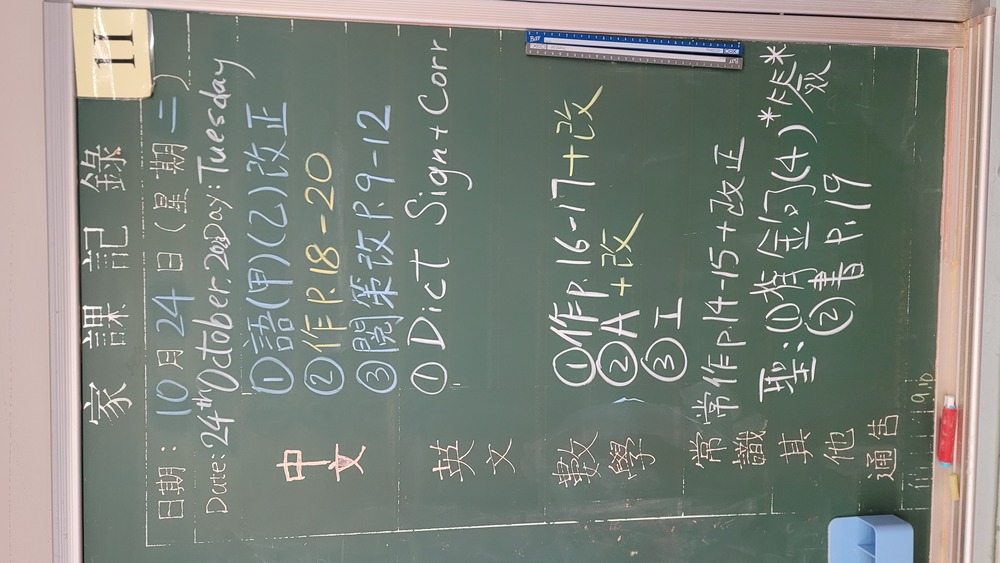 11
家課記錄
日期：10月24日(星期二)
Date: 24th October, 20 Day: Tuesday
中文
①語(甲)(乙)改正
②作P.18-20
③閱策改P.9-12
英文
①Dict Sign + Corr
數學
①作P.16-17+改
②A+改
③工
常識
常作p.14-15+改正
其他
聖：① (4)**簽
②書P.19
通告